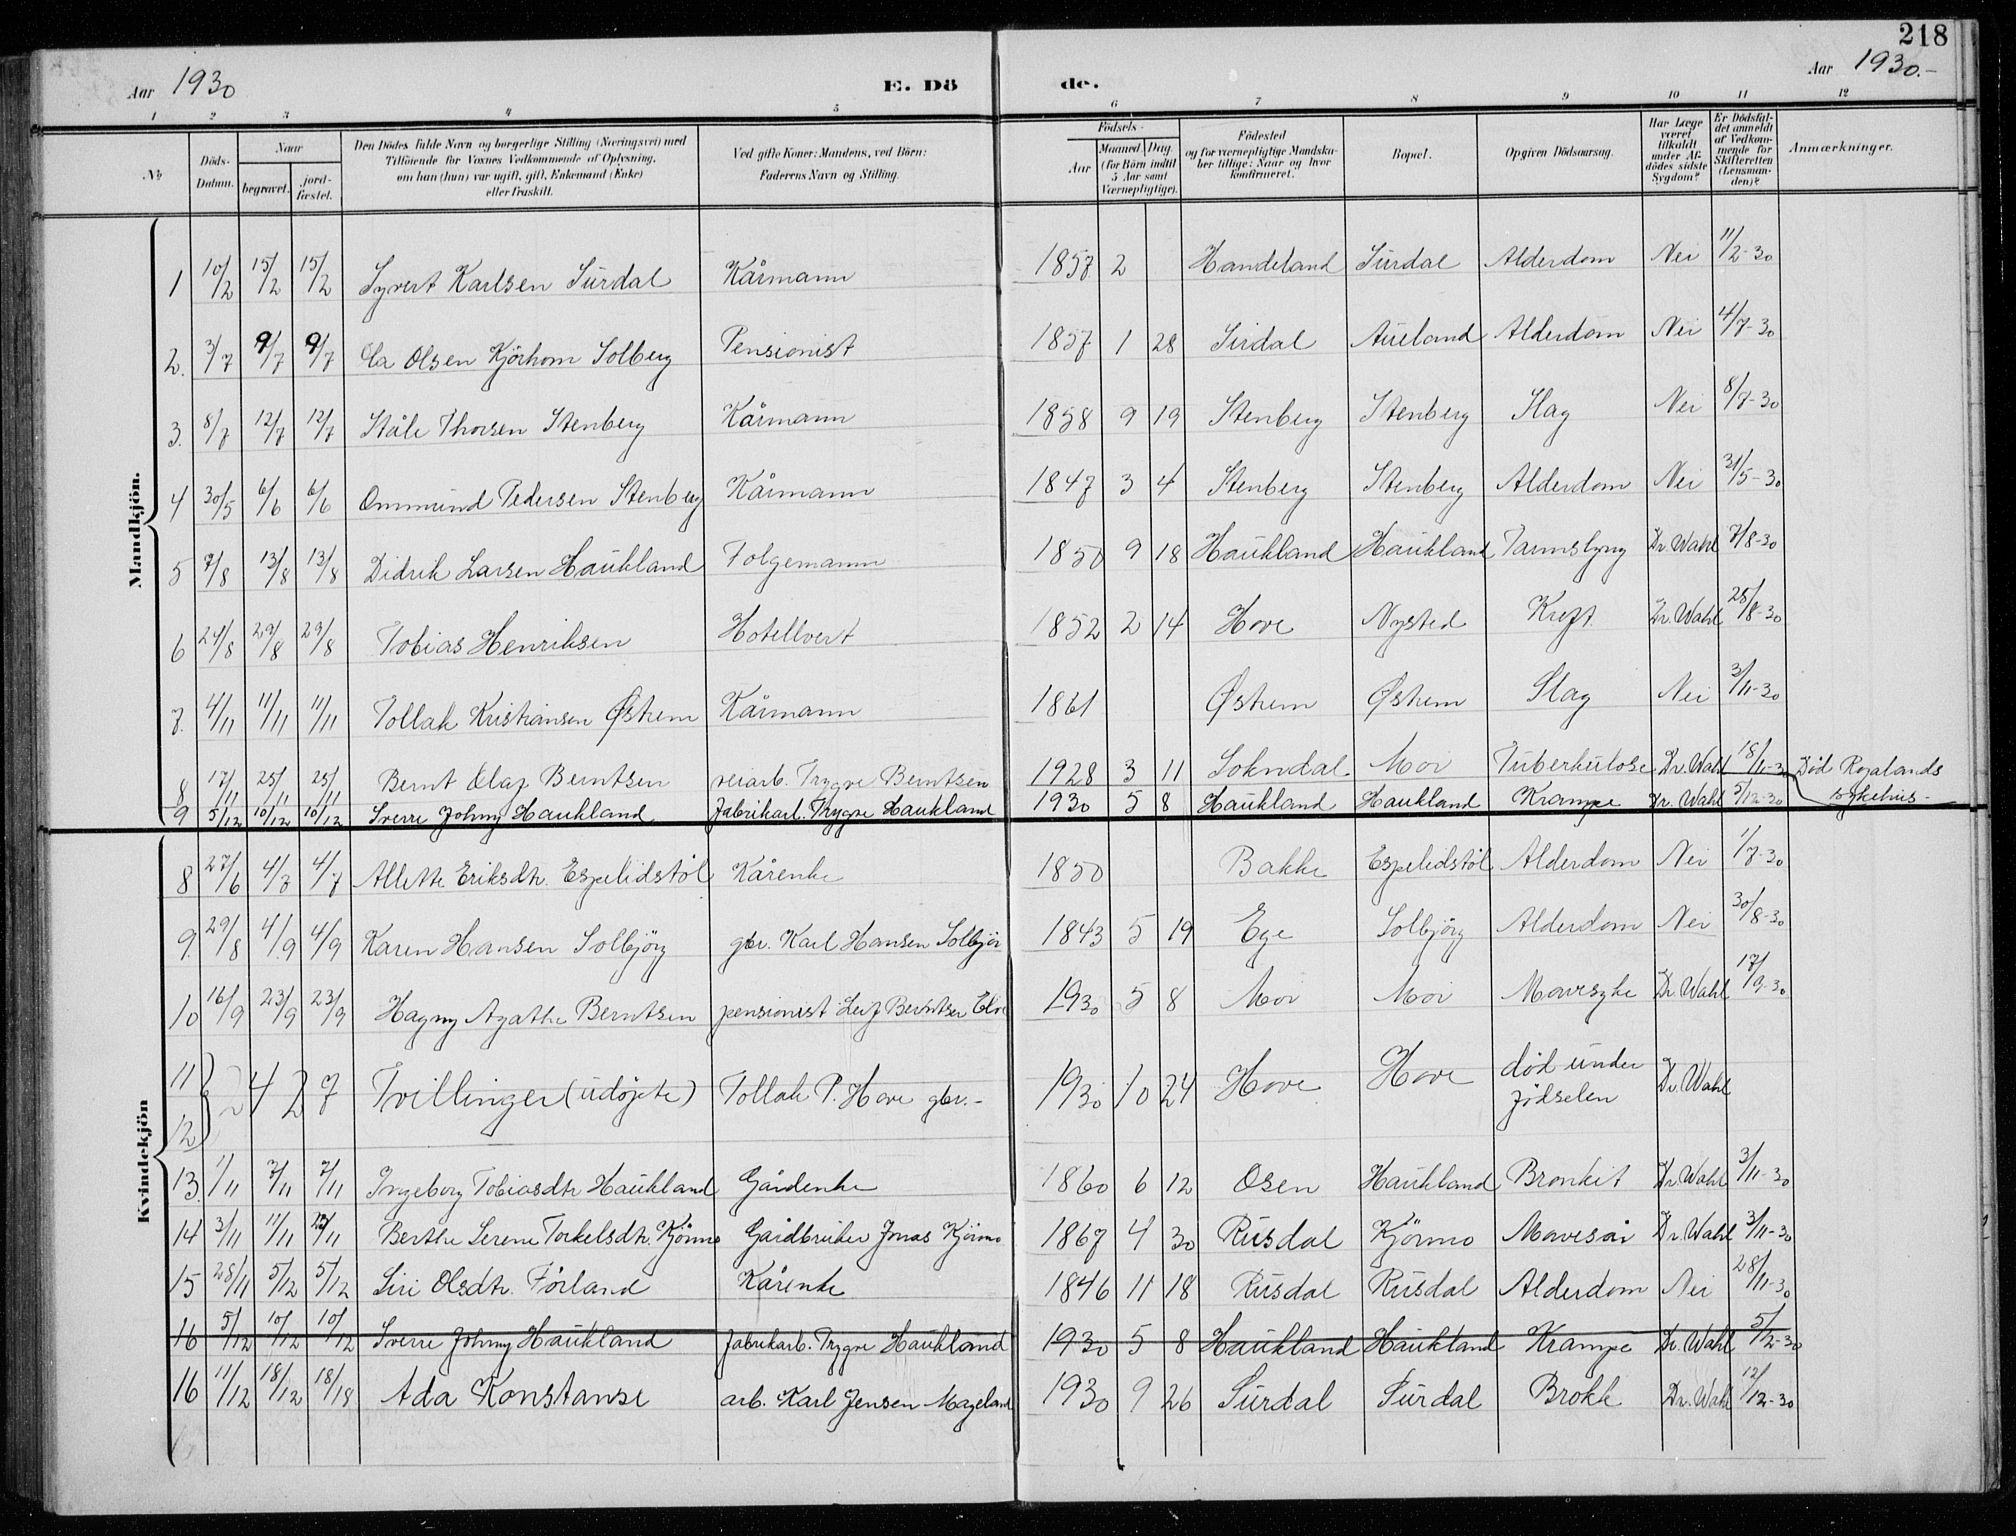 218
Aar 1930 E. Dö de. Aar 1930.-
1 2 3 4 5 6 7 8 9 10 11 12
№ Döds-Datum. Naar begravet. jord-fæstet. Den Dödes fulde Navn og borgerlige Stilling (Næringsvei) med Tilföiende for Voxnes Vedkommende af Oplysning, om han (hun) var ugift, gift, Enkemand (Enke) eller fraskilt. Ved gifte Koner: Mandens, ved Börn: Faderens Navn og Stilling. Födsels- Aar Maaned Dag. (for Börn indtil 5 Aar samt Værnepligtige). Födested og for værnepligtige Mandskaber tillige: Naar og hvor konfirmeret. Bopæl. Opgiven Dödsaarsag. Har Læge været tilkaldt under Afdödes sidste Sygdom? Er Dödsfaldet anmeldt af Vedkommende for Skifteretten (Lensmanden)? Anmærkninger.
Mandkjön.
1 10/2 15/2 15/2 Syvert Karlsen Surdal Kårmann 1857 2 Handeland Surdal Alderdom Nei 11/2-30
2. 3/7 9/7 9/7 Ola Olsen Kjörhom Solberg Pensionist 1857 1 28 Sirdal Aueland Alderdom Nei 4/7-30
3. 8/7 12/7 12/7 Ståle Thorsen Stenberg Kårmann 1858 9 19 Stenberg Stenberg Slag Nei 8/7-30
4 30/5 6/6 6/6 Ommund Pedersen Stenberg Kårmann 1847 3 4 Stenberg Stenberg Alderdom Nei 31/5-30
5 7/8 13/8 13/8 Didrik Larsen Haukland Folgemann 1850 9 18 Haukland Haukland Tarmslyng Dr. Wahl 7/8-30
6 24/8 29/8 29/8 Tobias Henriksen Hotellvert 1852 2 14 Hove Nysted Kreft Dr. Wahl 25/8-30
7. 4/11 11/11 11/11 Tollak Kristiansen Østrem Kårmann 1861 Østrem Østrem Slag Nei 3/11-30
8 17/11 25/11 25/11 Bernt Olaf Berntsen veiarb. Trygve Berntsen 1928 3 11 Sokndal Moi Tuberkulose Dr. Wahl 18/11-30 Död Rogalands sykehus-
9 5/12 10/12 10/12 Sverre Johny Haukland Fabrikarb. Trygve Haukland 1930 5 8 Haukland Haukland Krampe Dr. Wahl 5/12-30
Kvindekjön
8 27/6 4/7 4/7 Allette Eriksdtr. Espelidstöl Kårenke 1850 Bakke Espelidstöl Alderdom Nei 1/7-30
9. 29/8 4/9 4/9 Karen Hansen Solbjörg gbr. Karl Hansen Solbjör 1843 5 19 Ege Solbjörg Alderdom Nei 30/8-30
10 16/9 23/9 23/9 Hagny Agathe Berntsen pensionist Leif Berntsen 1930 5 8 Moi Moi Mavesyke Dr. Wahl 17/9-30
11 12 Tvillinger (udøpte) Tollak P. Hove gbr.- 1930 10 24 Hove Hove død under fødselen Dr. Wahl
13. 1/11 7/11 7/11 Ingeborg Tobiasdtr Haukland Gårdenke 1860 6 12 Osen Haukland Bronkit Dr. Wahl 3/11-30
14 3/11 11/11 Berthe Serene Torkelsdtr. Kjörmo Gårdbruker Jonas Kjörmo 1867 4 30 Rusdal Kjörmo Mavesår Dr. Wahl 3/11-30
15 28/11 5/12 5/12 Siri Olsdtr. Förland Kårenke 1846 11 18 Rusdal Rusdal Alderdom Nei 28/11-30
16 5/12 10/12 10/12 Sverre Johny Haukland Fabrikarb. Trygve Haukland 1930 5 8 Haukland Haukland Krampe Dr. Wahl 5/12-30
16 11/12 18/12 18/18 Ada Konstanse arb. Karl Jensen Mageland 1930 9 26 Surdal Surdal Brokk Dr. Wahl 12/12-30